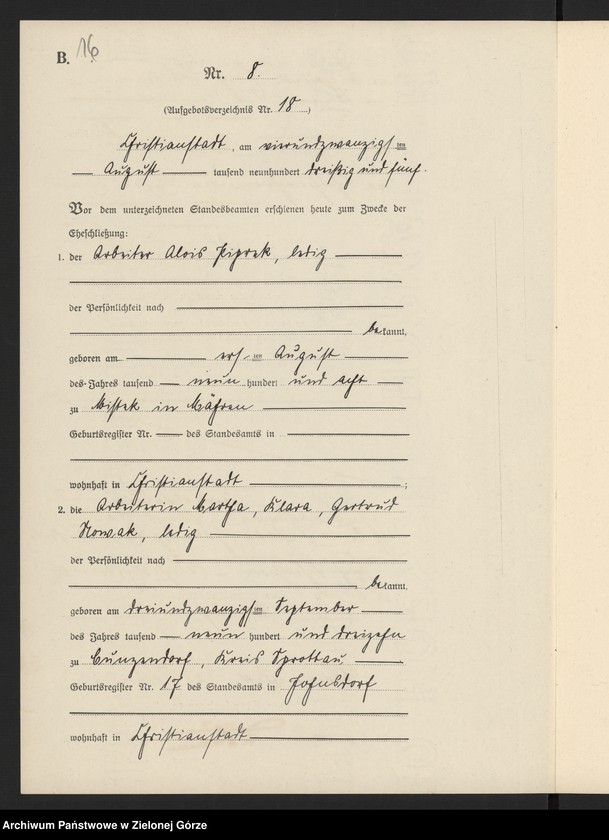 B. 16
Nr. 8.
(Aufgebotsverzeichnis Nr. 18)
Christianstadt, am vierundzwanzigsten
August tausend neunhundert dreißig und fünf.
Vor dem unterzeichneten Standesbeamten erschienen heute zum Zwecke der
Eheschließung:
1. der Arbeiter Alois Piprek, ledig
der Persönlichkeit nach
bekannt,
geboren am ersten August
des Jahres tausend neun hundert und acht
zu Mistek in Mähren
Geburtsregister Nr. des Standesamts in
wohnhaft in Christianstadt ;
2. die Arbeiterin Martha, Klara, Gertrud
Nowak, ledig
der Persönlichkeit nach
bekannt,
geboren am dreiundzwanzigsten September
des Jahres tausend neun hundert und dreizehn
zu Cunzendorf, Kreis Sprottau
Geburtsregister Nr. 17 des Standesamts in Johnsdorf
wohnhaft in Christianstadt
Archiwum Państwowe w Zielonej Górze